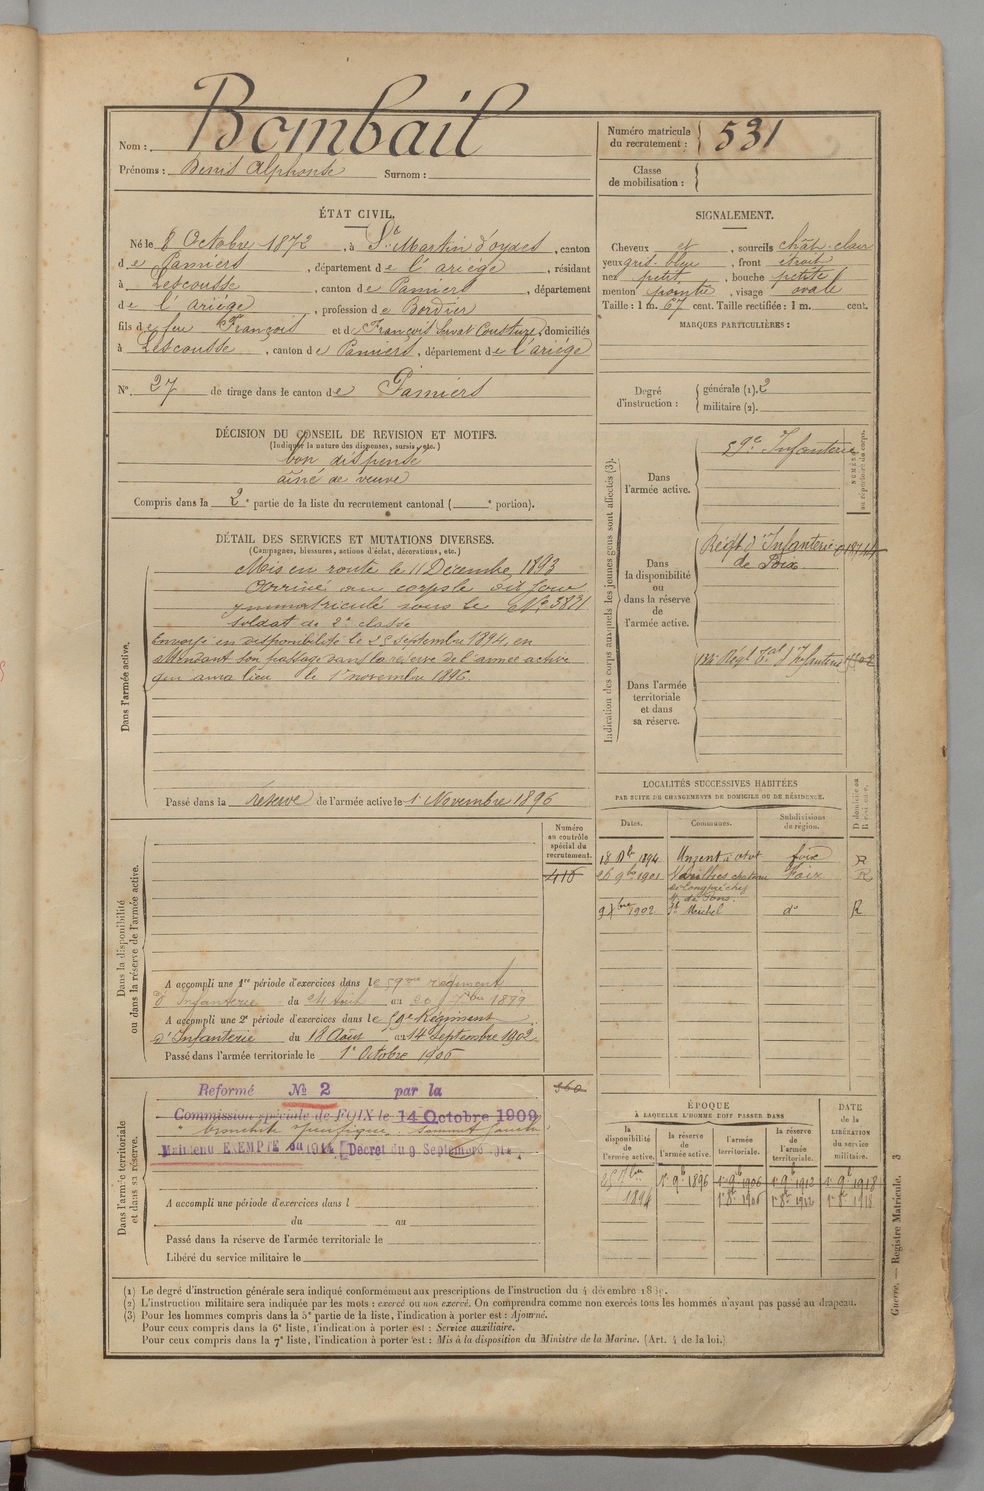 Nom : Bombail
Prénoms : Denis Alphonse Surnom :
Numéro matricule du recrutement : 531
Classe de mobilisation :
ÉTAT CIVIL.
Né le 8 Octobre 1872, à St Martin d'oydes, canton
de Pamiers, département de l'ariège, résidant
à Lescousse, canton de Pamiers, département
de l'ariège, profession de Bordier
fils de feu François et de Consture, domiciliés
à Lescousse, canton de Pamiers, département de l'ariège
N° 27 de tirage dans le canton de Pamiers
SIGNALEMENT.
Cheveux et, sourcils chât-clair
yeux gris-bleu, front étroit
nez petit, bouche petite
menton pointu, visage ovale
Taille : 1 m. 67 cent. Taille rectifiée : 1 m. cent.
MARQUES PARTICULIÈRES :
Degré d'instruction : générale (1). 2
militaire (2).
DÉCISION DU CONSEIL DE REVISION ET MOTIFS.
(Indiquer la nature des dispenses, sursis, etc.)
bon dispensé
aîné de veuve
Compris dans la 2e partie de la liste du recrutement cantonal ( e portion).
DÉTAIL DES SERVICES ET MUTATIONS DIVERSES.
(Campagnes, blessures, actions d'éclat, décorations, etc.)
Dans l'armée active.
Mis en route le 11 Décembre 1893
Arrivé au corps le dit jour
immatriculé sous le No 3831
soldat de 2e classe
Envoyé en disponibilité le 25 septembre 1894, en
attendant son passage dans la réserve de l'armée active
qui aura lieu le 1er novembre 1896.
Passé dans la réserve de l'armée active le 1 Novembre 1896
Indication des corps auxquels les jeunes gens sont affectés (3).
NUMÉRO au répertoire du corps.
Dans l'armée active.
59e Infanterie
Dans la disponibilité ou dans la réserve de l'armée active.
Régt d'Infanterie
de Foix
Dans l'armée territoriale et dans sa réserve.
Régt Tal d'Infanterie
LOCALITÉS SUCCESSIVES HABITÉES
PAR SUITE DE CHANGEMENTS DE DOMICILE OU DE RÉSIDENCE.
Dates. Communes. Subdivisions de région. D domicile ou R résidence.
18 Dbre 1894 foix R
26 9bre 1901 Varilhes Foix R
9 Xbre 1902 do R
Dans la disponibilité ou dans la réserve de l'armée active.
Numéro au contrôle spécial du recrutement.
415
A accompli une 1re période d'exercices dans le 59me régiment
d'Infanterie du 24 août au 20 7bre 1899
A accompli une 2e période d'exercices dans le 59e Régiment
d'Infanterie du 18 Août au 14 septembre 1902
Passé dans l'armée territoriale le 1er Octobre 1906
Dans l'armée territoriale et dans sa réserve.
360
Reformé No 2 par la
Commission spéciale de FOIX le 14 Octobre 1909
bronchite spécifique, sommet gauche
Maintenu EXEMPTÉ en 1914 [Décret du 9 Septembre 1914.
A accompli une période d'exercices dans l
du au
Passé dans la réserve de l'armée territoriale le
Libéré du service militaire le
ÉPOQUE
À LAQUELLE L'HOMME DOIT PASSER DANS
DATE de la LIBÉRATION du service militaire.
la disponibilité de l'armée active. la réserve de l'armée active. l'armée territoriale. la réserve de l'armée territoriale.
25 7bre 1er 9b 1896 1er 9b 1906 1er 9b 1912 1er 9b 1918
1894 1er 8b 1906 1er 8b 1912 1er 8b 1918
(1) Le degré d'instruction générale sera indiqué conformément aux prescriptions de l'instruction du 4 décembre
(2) L'instruction militaire sera indiquée par les mots : exercé ou non exercé. On comprendra comme non exercés tous les hommes n'ayant pas passé au drapeau.
(3) Pour les hommes compris dans la 5e partie de la liste, l'indication à porter est : Ajourné.
Pour ceux compris dans la 6e liste, l'indication à porter est : Service auxiliaire.
Pour ceux compris dans la 7e liste, l'indication à porter est : Mis à la disposition du Ministre de la Marine. (Art. 4 de la loi.)
Guerre. — Registre Matricule. 3